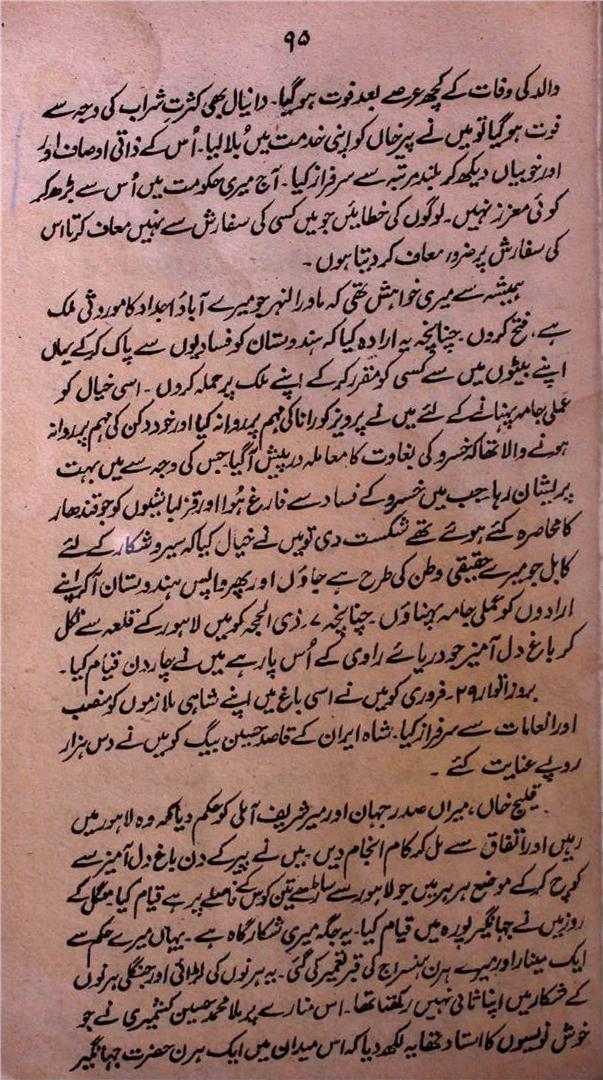 ۹۵
والد کی وفات کے کچھ عرصے بعد فوت ہوگیا۔ دانیال بھی کثرتِ شراب کی وجہ سے
فوت ہوگیا تو میں نے پیر خاں کو اپنی خدمت میں بُلا لیا۔ اُس کے ذاتی اوصاف اور
اور خوبیاں دیکھ کر بلند مرتبہ سے سرفراز کیا۔ آج میری حکومت میں اُس سے بڑھ کر
کوئی معزز نہیں۔ لوگوں کی خطائیں جو میں کسی کی سفارش سے نہیں معاف کرتا اس
کی سفارش پر ضرور معاف کر دیتا ہوں۔
ہمیشہ سے میری خواہش تھی کہ ماورا النہر جو میرے آباؤ اجداد کا موروثی ملک
ہے، فتح کروں۔ چنانچہ یہ ارادہ کیا کہ ہندوستان کو فسادیوں سے پاک کر کے یہاں
اپنے بیٹوں میں سے کسی کو مقرر کر کے اپنے ملک پر حملہ کروں۔ اسی خیال کو
عملی جامہ پہنانے کے لئے میں نے پرویز کو رانا کی مہم پر روانہ کیا اور خود دکن کی مہم پر روانہ
ہونے والا تھا کہ خسرو کی بغاوت کا معاملہ درپیش آگیا جس کی وجہ سے میں بہت
پریشان رہا۔ جب میں خسرو کے فساد سے فارغ ہُوا اور قزلباشیوں کو جو قندھار
کا محاصرہ کئے ہوئے تھے شکست دی تو میں نے خیال کیا کہ سیر و شکار کے لئے
کابل جو میرے حقیقی وطن کی طرح ہے جاؤں اور پھر واپس ہندوستان آکر اپنے
ارادوں کو عملی جامہ پہناؤں۔ چنانچہ ۷۔ ذی الحجہ کو میں لاہور کے قلعہ سے نکل
کر باغ دل آمیز جو دریائے راوی کے اُس پار ہے میں نے چار دن قیام کیا۔
بروز اتوار ۲۹۔ فروری کو میں نے اسی باغ میں اپنے شاہی ملازموں کو منصب
اور انعامات سے سرفراز کیا۔ شاہ ایران کے قاصد حسین بیگ کو میں نے دس ہزار
روپے عنایت کئے۔
قلیج خاں، میراں صدر جہان اور میر شریف آملی کو حکم دیا کہ وہ لاہور میں
رہیں اور اتفاق سے مل کر کام انجام دیں۔ میں نے پیر کے دن باغ دل آمیز سے
کوچ کر کے موضع ہرہر میں جو لاہور سے ساڑھے تین کوس کے فاصلے پر ہے قیام کیا۔ منگل کے
روز میں نے جہانگیر پورہ میں قیام کیا۔ یہ جگہ میری شکارگاہ ہے۔ یہاں میرے حکم سے
ایک مینار اور میرے ہرن ہنسراج کی قبر تعمیر کی گئی۔ یہ ہرنوں کی لڑائی اور جنگلی ہرنوں
کے شکار میں اپنا ثانی نہیں رکھتا تھا۔ اس منارے پر ملا محمد حسین کشمیری نے جو
خوش نویسوں کا استاد تھا یہ لکھ دیا کہ اس میدان میں ایک ہرن حضرت جہانگیر